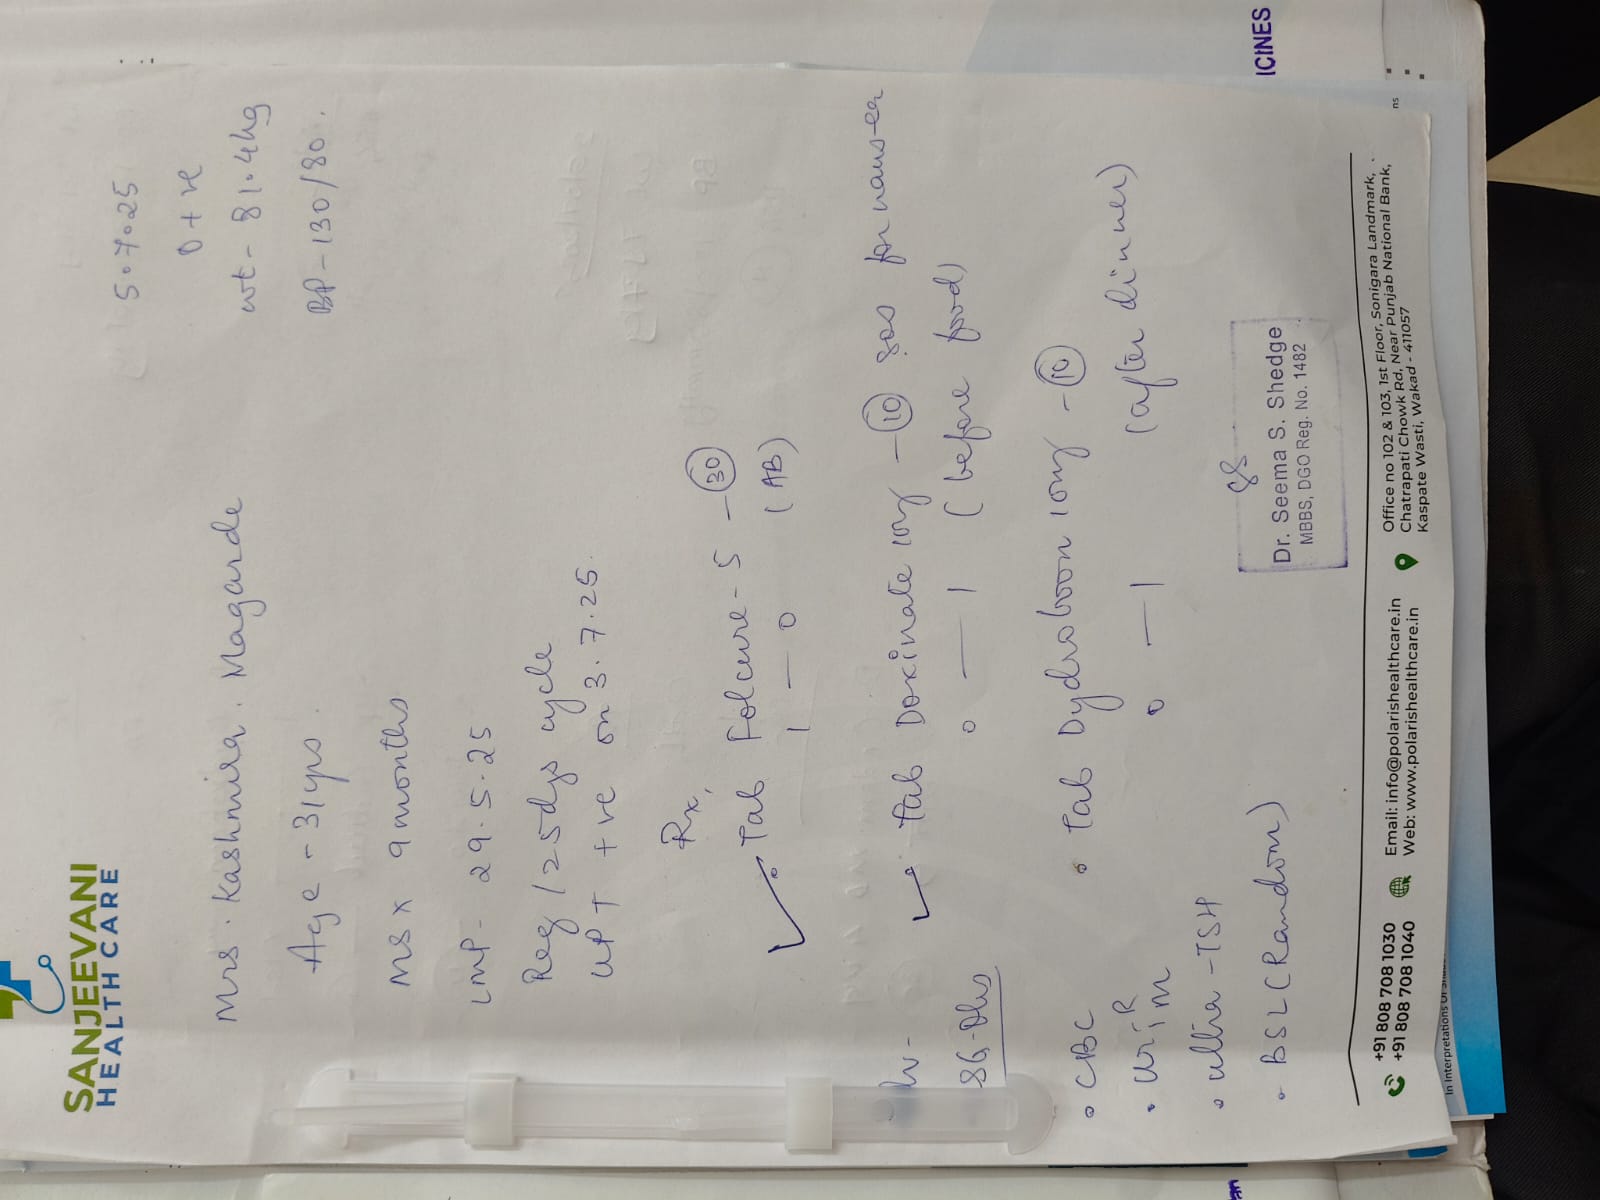 SANJEEVANI
HEALTH CARE
5.7.25
Mrs. Kashmira. Magarde
O +ve
Age - 31yrs.
wt - 81.4kg
MS x 9 months
BP - 130/80.
LMP - 29.5.25
Reg / 25dys cycle
UPT +ve on 3.7.25.
Rx,
Tab Folcure-5 - 30
1 — 0 (AB)
Tab Doxinate 10mg - 10 sos for nausea
0 — 1 (before food)
Inv-
SG-Obs
Tab Dydroboon 10mg - 10
0 — 1 (after dinner)
CBC
Uri R
M
Ultra-TSH
BSL (Random)
SS
Dr. Seema S. Shedge
MBBS, DGO Reg. No. 1482
+91 808 708 1030
+91 808 708 1040
Email: info@polarishealthcare.in
Web: www.polarishealthcare.in
Office no 102 & 103, 1st Floor, Sonigara Landmark,
Chatrapati Chowk Rd, Near Punjab National Bank,
Kaspate Wasti, Wakad - 411057
ICINES
ns